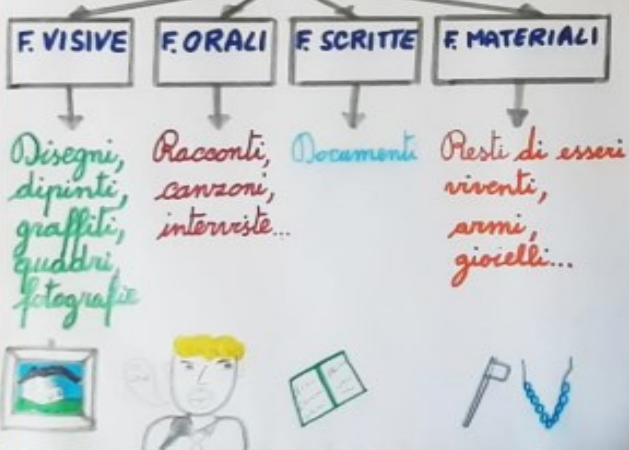 F. VISIVE
F. ORALI
F. SCRITTE
F. MATERIALI
Disegni,
dipinti,
graffiti,
quadri,
fotografie
Racconti,
canzoni,
interviste...
Documenti
Resti di esseri
viventi,
armi,
gioielli...